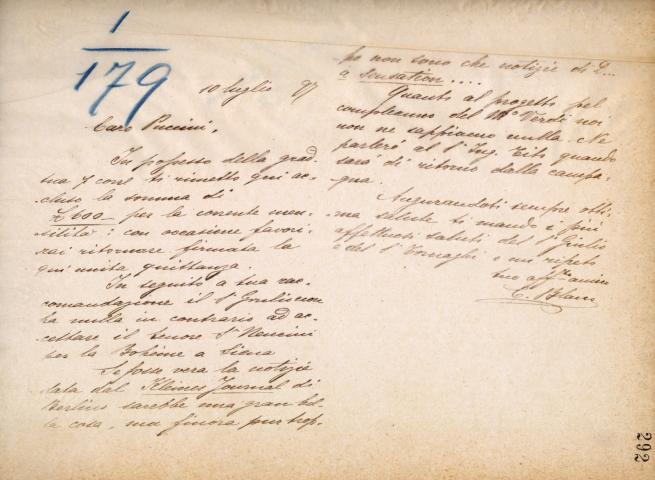 1
179
10 luglio 97
Caro Puccini,
In possesso della grad.
tua 7 corr. ti rimetto qui ac-
cluso la somma di
£ 600 per la corrente men-
silità: con occasione favori-
rai ritornare firmata la
qui unita quittanza.
In seguito a tua rac-
comandazione il Sr Giulio non
ha nulla in contrario ad ac-
cettare il tenore Sr Nencini
per la Bohème a Siena
Se fosse vera la notizia
data dal Kleines Journal di
Berlino sarebbe una gran bel-
la cosa, ma finora pur trop-
po non sono che notizie di
a sensation....
Quanto al progetto pel
compleanno del Mo Verdi noi
non ne sappiamo nulla. Ne
parlerò al Sr Ing. Tito quando
sarà di ritorno dalla campa-
gna.
Augurandoti sempre otti-
ma salute ti mando i più
affettuosi saluti del Sr Giulio
e del Sr Tornaghi e mi ripeto
tuo aff. amico
C. Blanc
292